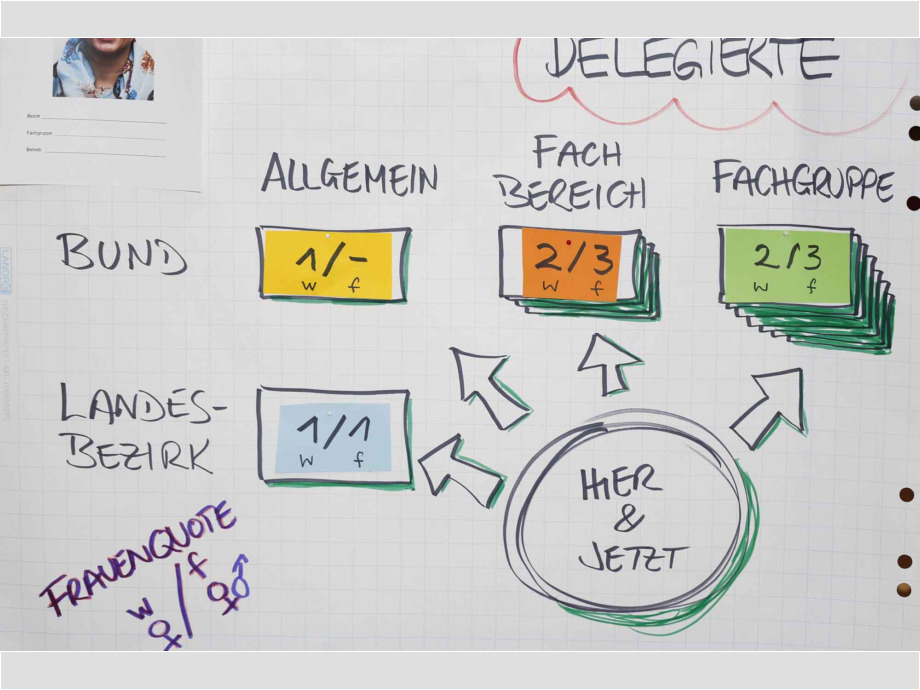 DELEGIERTE
Bezirk
Fachgruppe
Betrieb
ALLGEMEIN
FACH
BEREICH
FACHGRUPPE
BUND
1/-
w f
2/3
w f
2/3
w f
LANDES-
BEZIRK
1/1
w f
HIER
&
JETZT
FRAUENQUOTE
w / f